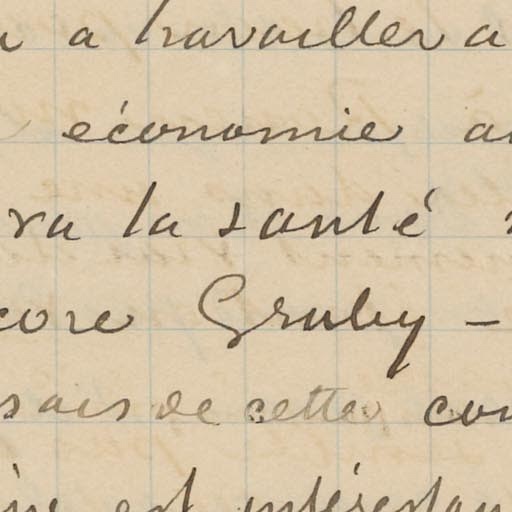 a a travailler a
économie au
ra la santé
core Gruby –
sais de cette con
est intéressan